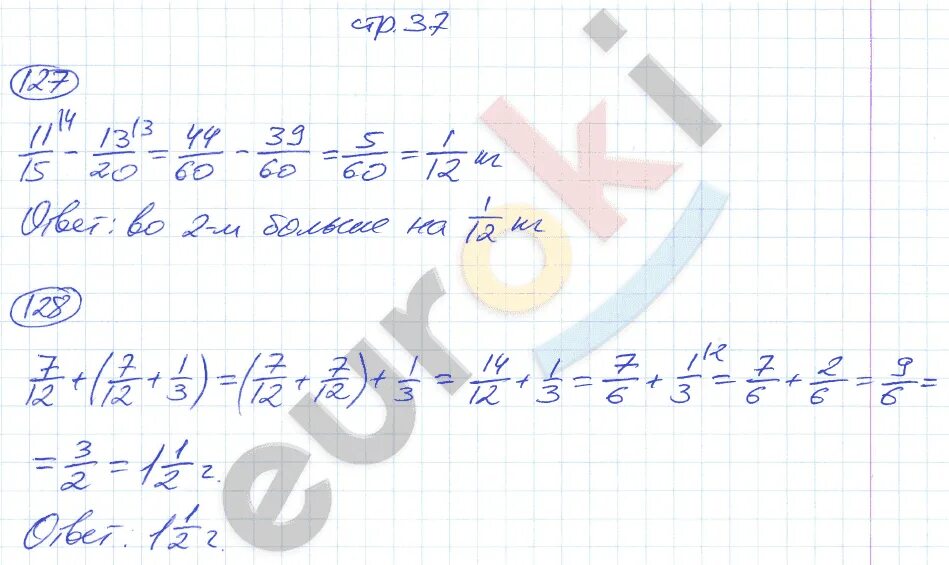 стр. 37
127
11/15 |4 - 13/20 |3 = 44/60 - 39/60 = 5/60 = 1/12 кг
Ответ: во 2-м больше на 1/12 кг
128
7/12 + (7/12 + 1/3) = (7/12 + 7/12) + 1/3 = 14/12 + 1/3 = 7/6 + 1/3 |2 = 7/6 + 2/6 = 9/6 =
= 3/2 = 1 1/2 г.
Ответ: 1 1/2 г.
euroki